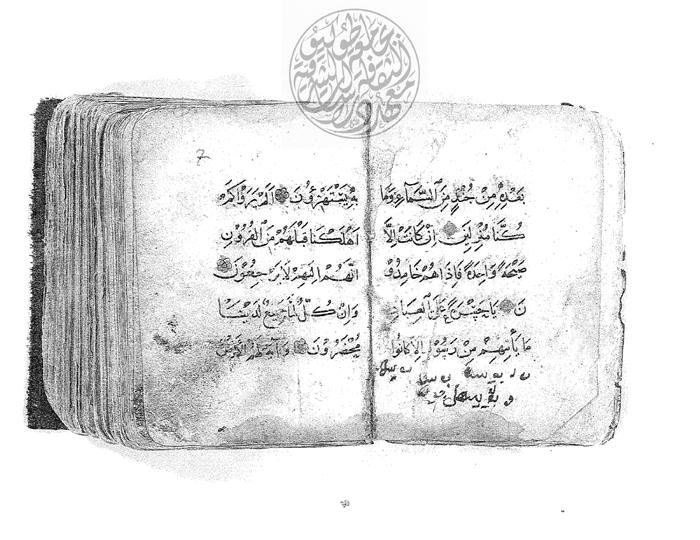 بَعْدِهِ مِنْ جُنْدٍ مِنَ السَّمَاءِ وَمَا
كُنَّا مُنْزِلِينَ اِنْ كَانَتْ اِلَّا
صَيْحَةً وَاحِدَةً فَاِذَا هُمْ خَامِدُو
نَ يَا حَسْرَةً عَلَى الْعِبَادِ
مَا يَأْتِيهِمْ مِنْ رَسُولٍ اِلَّا كَانُوا
7
بِهِ يَسْتَهْزِؤُنَ اَلَمْ يَرَوْا كَمْ
اَهْلَكْنَا قَبْلَهُمْ مِنَ الْقُرُونِ
اَنَّهُمْ اِلَيْهِمْ لَا يَرْجِعُونَ
وَاِنْ كُلٌّ لَمَّا جَمِيعٌ لَدَيْنَا
مُحْضَرُونَ وَاٰيَةٌ لَهُمُ الْاَرْضُ